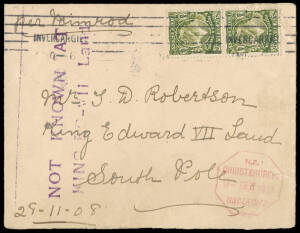 per Nimrod
INVERCARGILL
INVERCARGILL
NOT KNOWN AT
KING Edward VII Land
Mr J. D. Robertson
King Edward VII Land
South Pole
N.Z.
CHRISTCHURCH
29-11-08